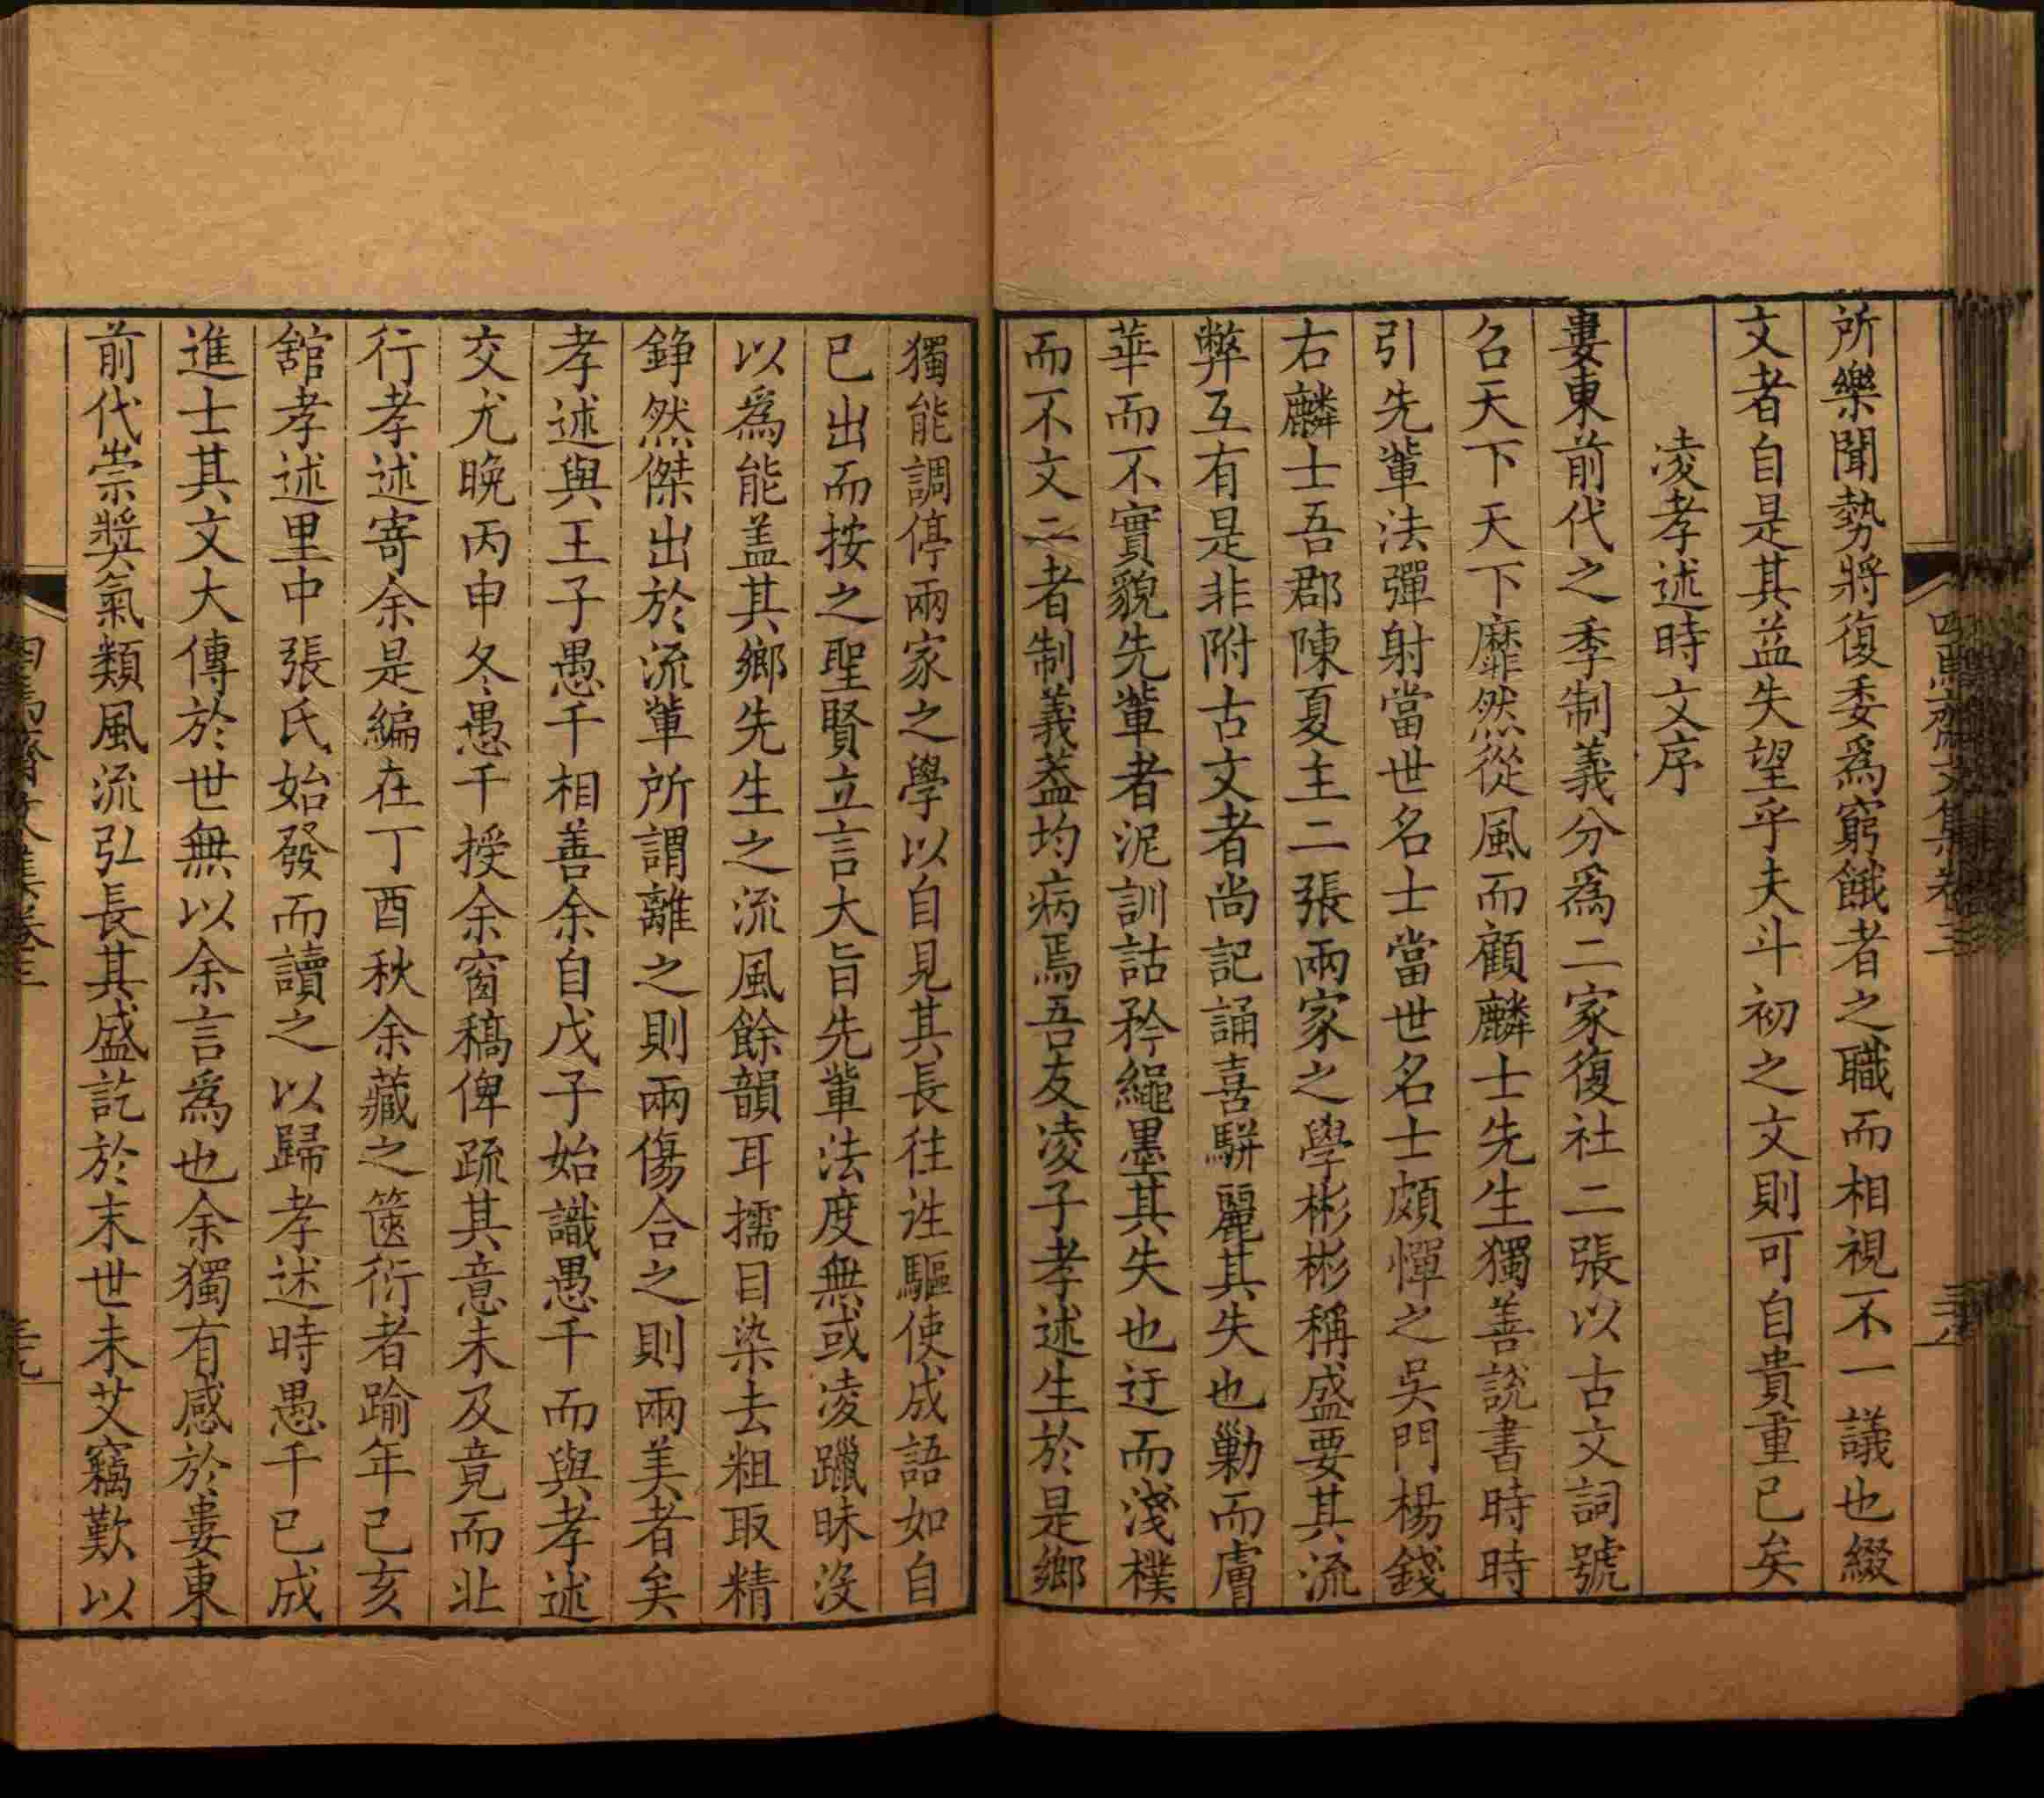 所樂聞勢將復委爲窮餓者之職而相視不一議也綴
文者自是其益失望乎夫斗初之文則可自貴重已矣
凌孝述時文序
婁東前代之季制義分爲二家復社二張以古文詞號
召天下天下靡然從風而顧麟士先生獨善說書時時
引先軰法彈射當世名士當世名士頗憚之吳門楊錢
右麟士吾郡陳夏主二張兩家之學彬彬稱盛要其流
弊互有是非附古文者尚記誦喜駢麗其失也勦而膚
華而不實貌先軰者泥訓詁矜繩墨其失也迂而淺樸
而不文二者制義葢均病焉吾友凌子孝述生於是鄉
獨能調停兩家之學以自見其長往往驅使成語如自
已出而按之聖賢立言大旨先軰法度無或凌躐昧沒
以爲能盖其鄉先生之流風餘韻耳擩目染去粗取精
錚然傑出於流軰所謂離之則兩傷合之則兩美者矣
孝述與王子愚千相善余自戊子始識愚千而與孝述
交尤晚丙申冬愚千授余窗稿俾疏其意未及竟而北
行孝述寄余是編在丁酉秋余藏之篋衍者踰年己亥
舘孝述里中張氏始發而讀之以歸孝述時愚千已成
進士其文大傳於世無以余言爲也余獨有感於婁東
前代崇獎氣類風流弘長其盛訖於末世未艾竊歎以
文集卷三
三十八
文集卷三
三十九